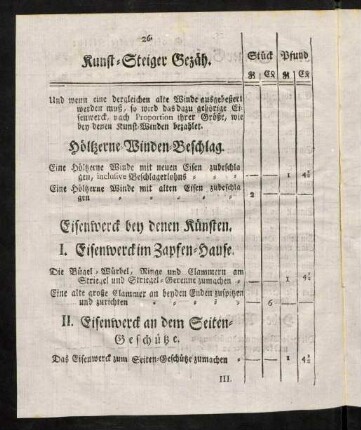 26
Kunst-Steiger Gezäh.
Stück Pfund
R Cß R Cß
Und wenn eine dergleichen alte Winde ausgebessert
werden muß, so wird das dazu gehörige Ei-
senwerck, nach Proportion ihrer Größe, wie
bey denen Kunst-Wenden bezahlet.
Höltzerne-Winden-Beschlag.
Eine Höltzerne Winde mit neuen Eisen zubeschla-
gen, inclusive Beschlagerlohns - - 1 4½
Eine Höltzerne Winde mit alten Eisen zubeschla-
gen 2 - - -
Eisenwerck bey denen Künsten.
I. Eisenwerck im Zapfen-Hause.
Die Bügel-Würbel, Ringe und Clammern am
Striegel und Striegel-Gerenne zumachen - - 1 4½
Eine alte große Clammer an beyden Enden zuspitzen
und zurichten - 6 - -
II. Eisenwerck an dem Seiten-
Geschütze.
Das Eisenwerck zum Seiten-Geschütze zumachen - - 1 4½
III.